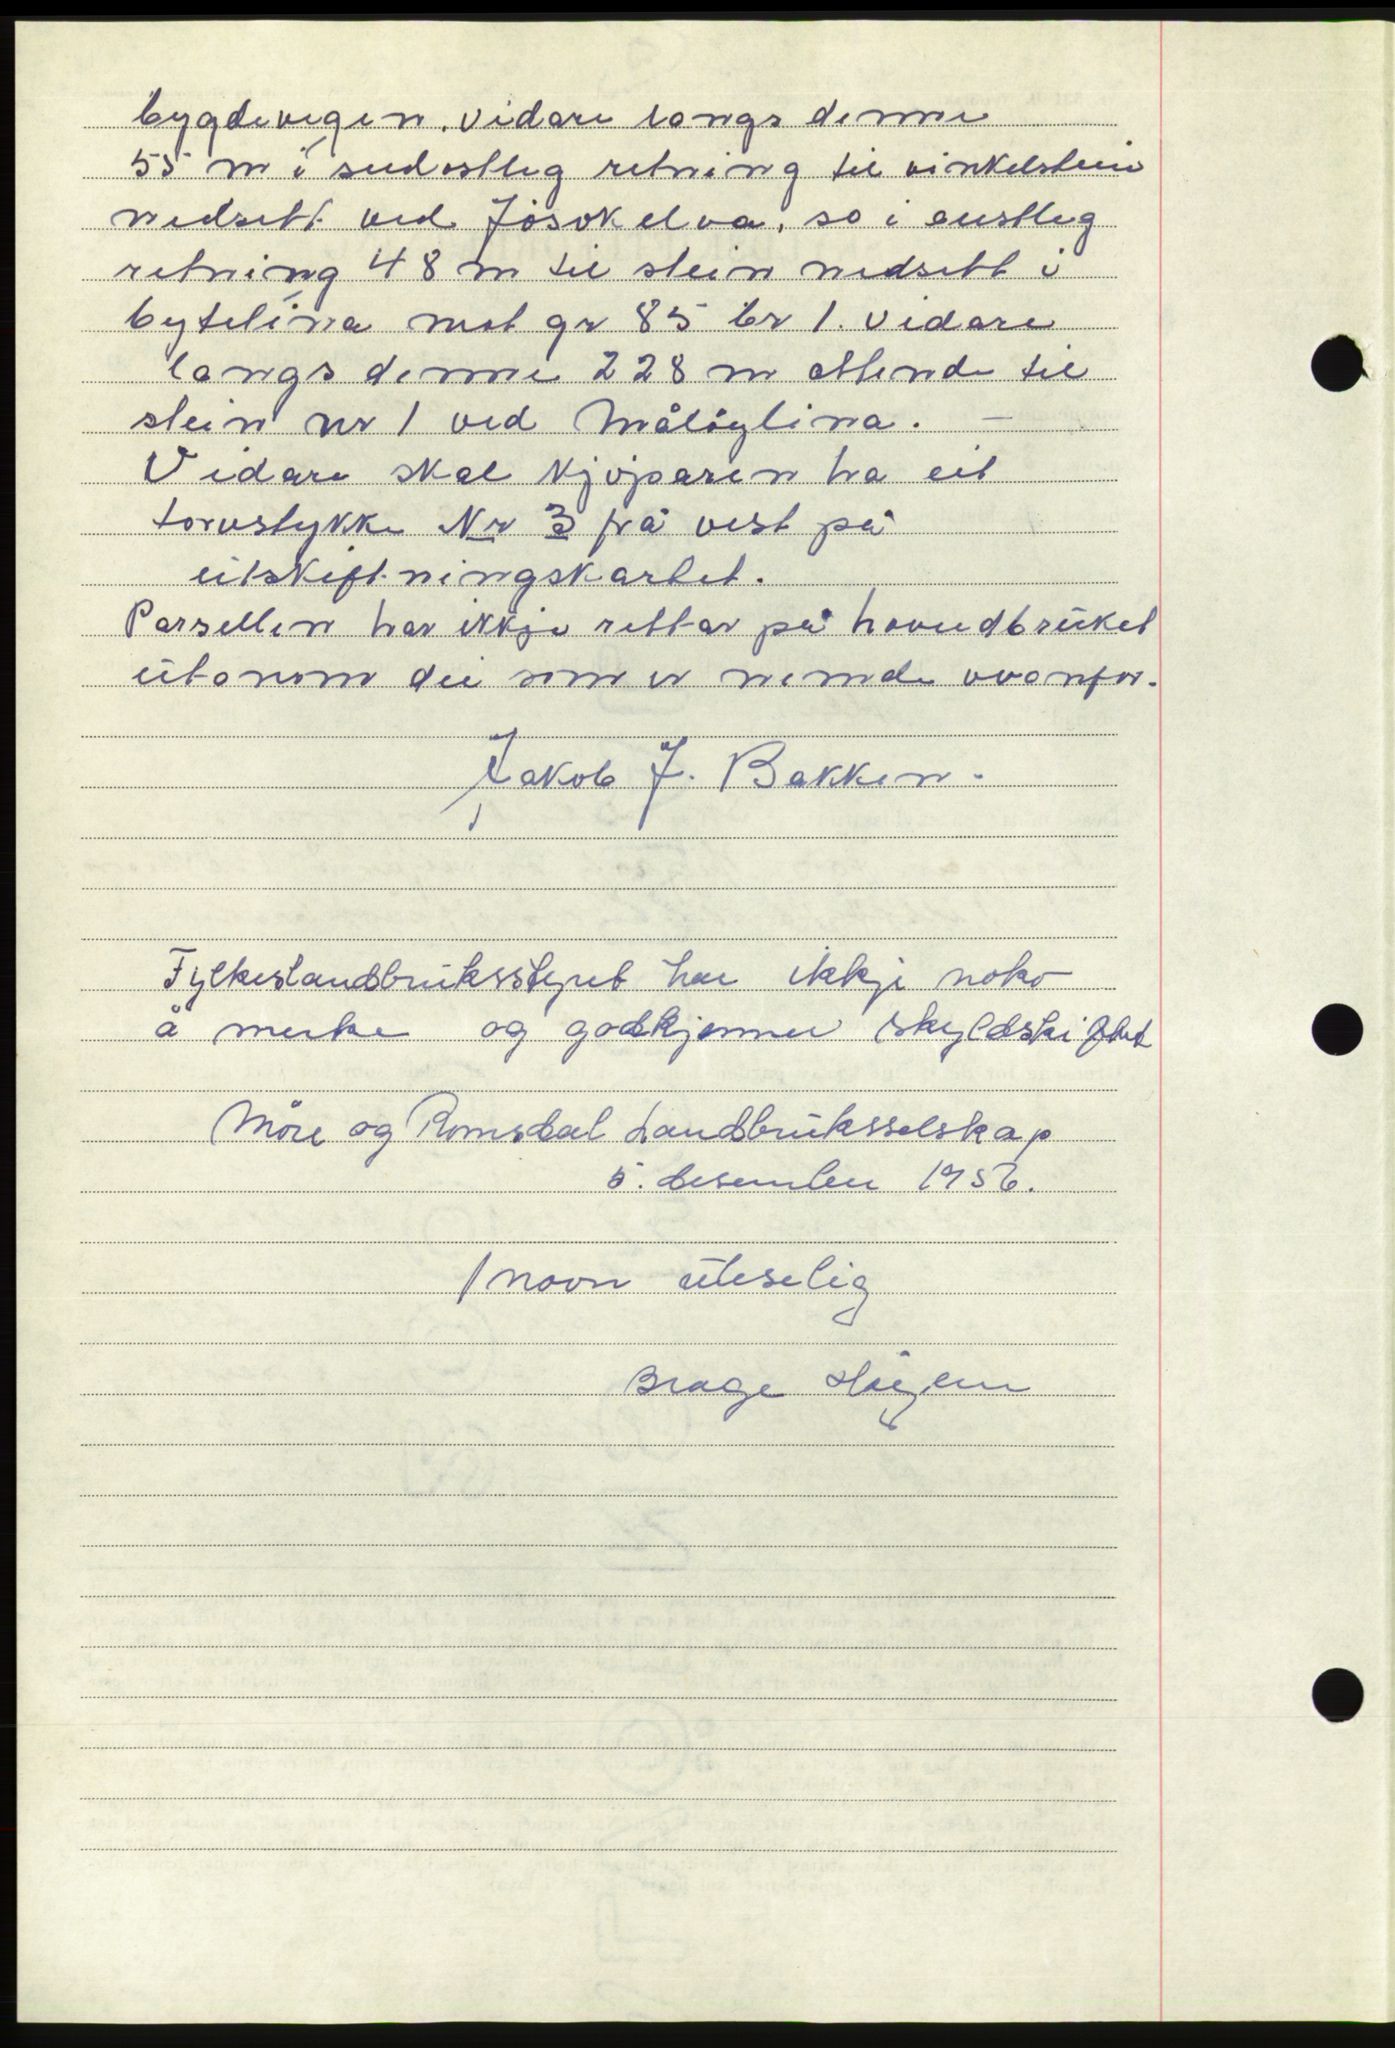 bygdevegen. vidare langs denne
55 m i sudostleg retning til vinkelstein
nedsett ved Jösokelva, so i austleg
retning 48 m til stein nedsett i
bytelina mot gr 85 br 1. vidare
langs denne 228 m attende til
stein nr 1 ved Målöylina. —
Vidare skal kjöparen ha eit
torvstykke Nr 3 frå vest på
utskiftningskartet.
Parsellen har ikkje rettar på hovudbruket
utanom dei som er nemde ovanfor.
Jakob J. Bakken.
Fylkeslandbruksstyret har ikkje noko
å merke og godkjenner skyldskiftet
Möre og Romsdal Landbruksselskap
5. desember 1956.
/ navn uleselig
Brage Höyem